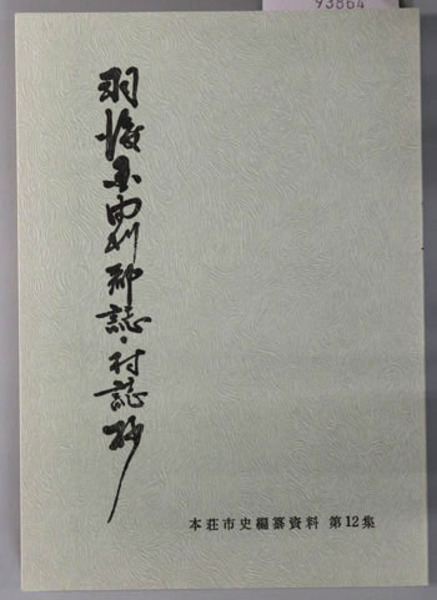 93864
羽後国由利郡誌・村誌抄
本荘市史編纂資料 第12集